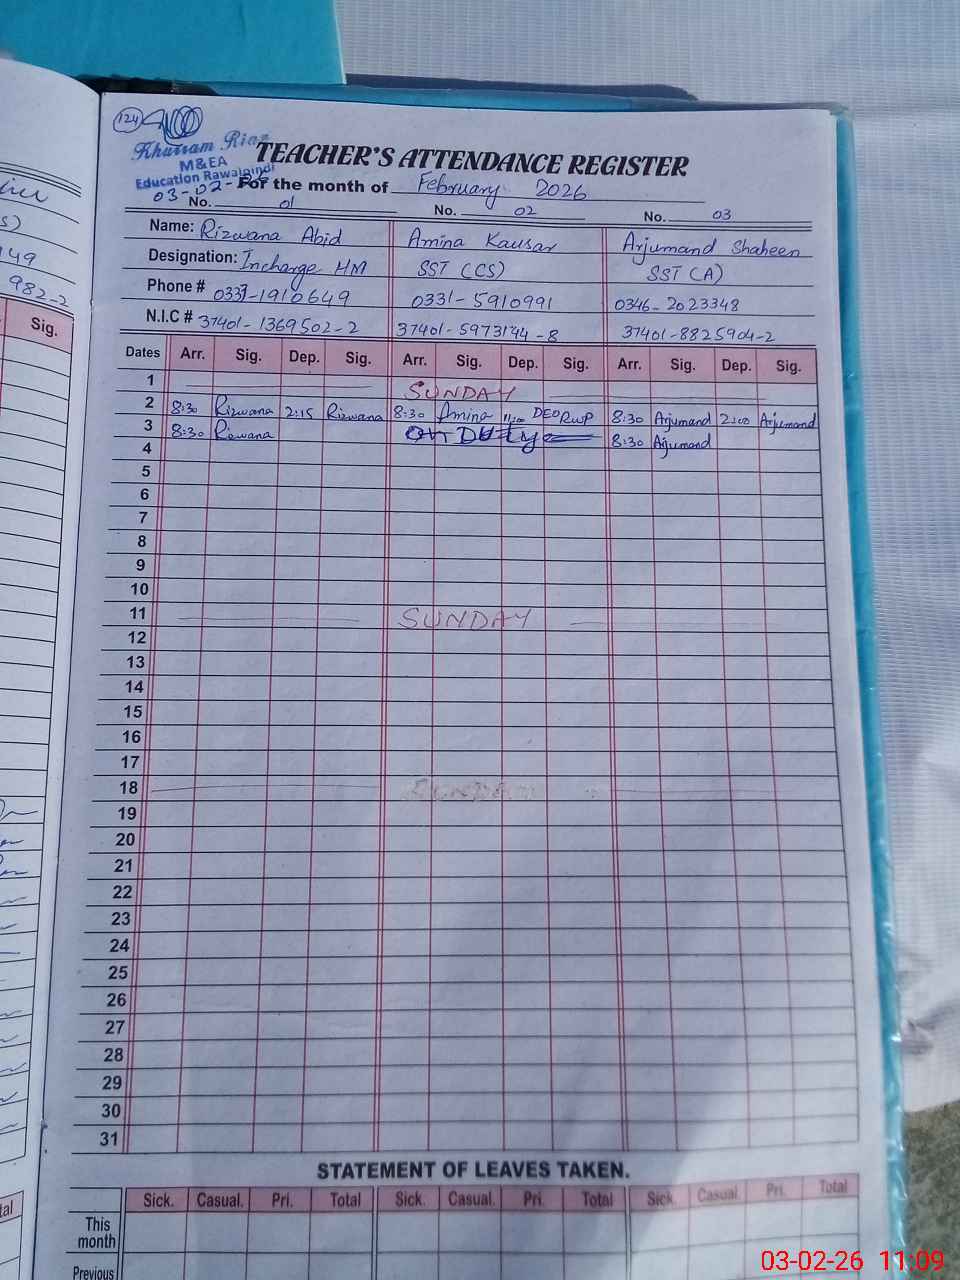 124
Khurram Riaz
M&EA
Education Rawalpindi
03-02-26
TEACHER'S ATTENDANCE REGISTER
For the month of February 2026
No. 01 No. 02 No. 03
Name: Rizwana Abid Amina Kausar Arjumand Shaheen
Designation: Incharge HM SST (CS) SST (A)
Phone # 0331-1910649 0331-5910991 0346-2023348
N.I.C # 37401-1369502-2 37401-5973144-8 37401-8825904-2
Dates Arr. Sig. Dep. Sig. Arr. Sig. Dep. Sig. Arr. Sig. Dep. Sig.
1 SUNDAY
2 8:30 Rizwana 2:15 Rizwana 8:30 Amina 11:00 DEO RWP 8:30 Arjumand 2:00 Arjumand
3 8:30 Rizwana On Duty 8:30 Arjumand
4
5
6
7
8
9
10
11 SUNDAY
12
13
14
15
16
17
18 SUNDAY
19
20
21
22
23
24
25
26
27
28
29
30
31
STATEMENT OF LEAVES TAKEN.
Sick. Casual. Pri. Total Sick. Casual. Pri. Total Sick. Casual. Pri. Total
This month
Previous
S)
149
982-2
Sig.
tal
03-02-26 11:09